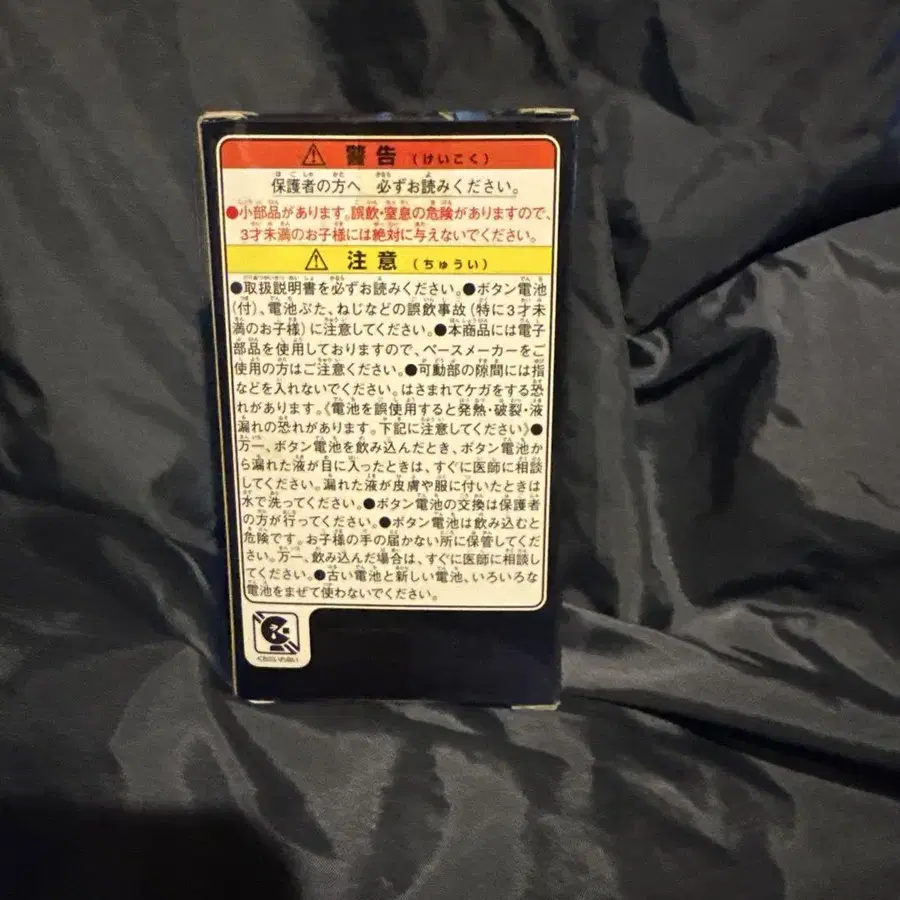 ⚠ 警告 (けいこく)
保護者の方へ 必ずお読みください。
●小部品があります。誤飲・窒息の危険がありますので、
3才未満のお子様には絶対に与えないでください。
⚠ 注意 (ちゅうい)
●取扱説明書を必ずお読みください。●ボタン電池
(付)、電池ぶた、ねじなどの誤飲事故(特に3才未
満のお子様)に注意してください。●本商品には電子
部品を使用しておりますので、ペースメーカーをご
使用の方はご注意ください。●可動部の隙間には指
などを入れないでください。はさまれてケガをする恐
れがあります。《電池を誤使用すると発熱・破裂・液
漏れの恐れがあります。下記に注意してください》●
万一、ボタン電池を飲み込んだとき、ボタン電池か
ら漏れた液が目に入ったときは、すぐに医師に相談
してください。漏れた液が皮膚や服に付いたときは
水で洗ってください。●ボタン電池の交換は保護者
の方が行ってください。●ボタン電池は飲み込むと
危険です。お子様の手の届かない所に保管してくだ
さい。万一、飲み込んだ場合は、すぐに医師に相談し
てください。●古い電池と新しい電池、いろいろな
電池をまぜて使わないでください。
くちにいれない